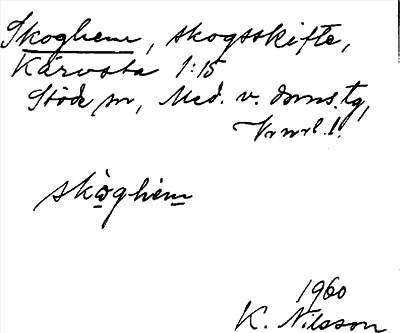 Skoghem, skogsskifte,
Kärvsta 1:15
Stöde sn, Med. v. doms.tg,
skòghèm
1960
K. Nilsson